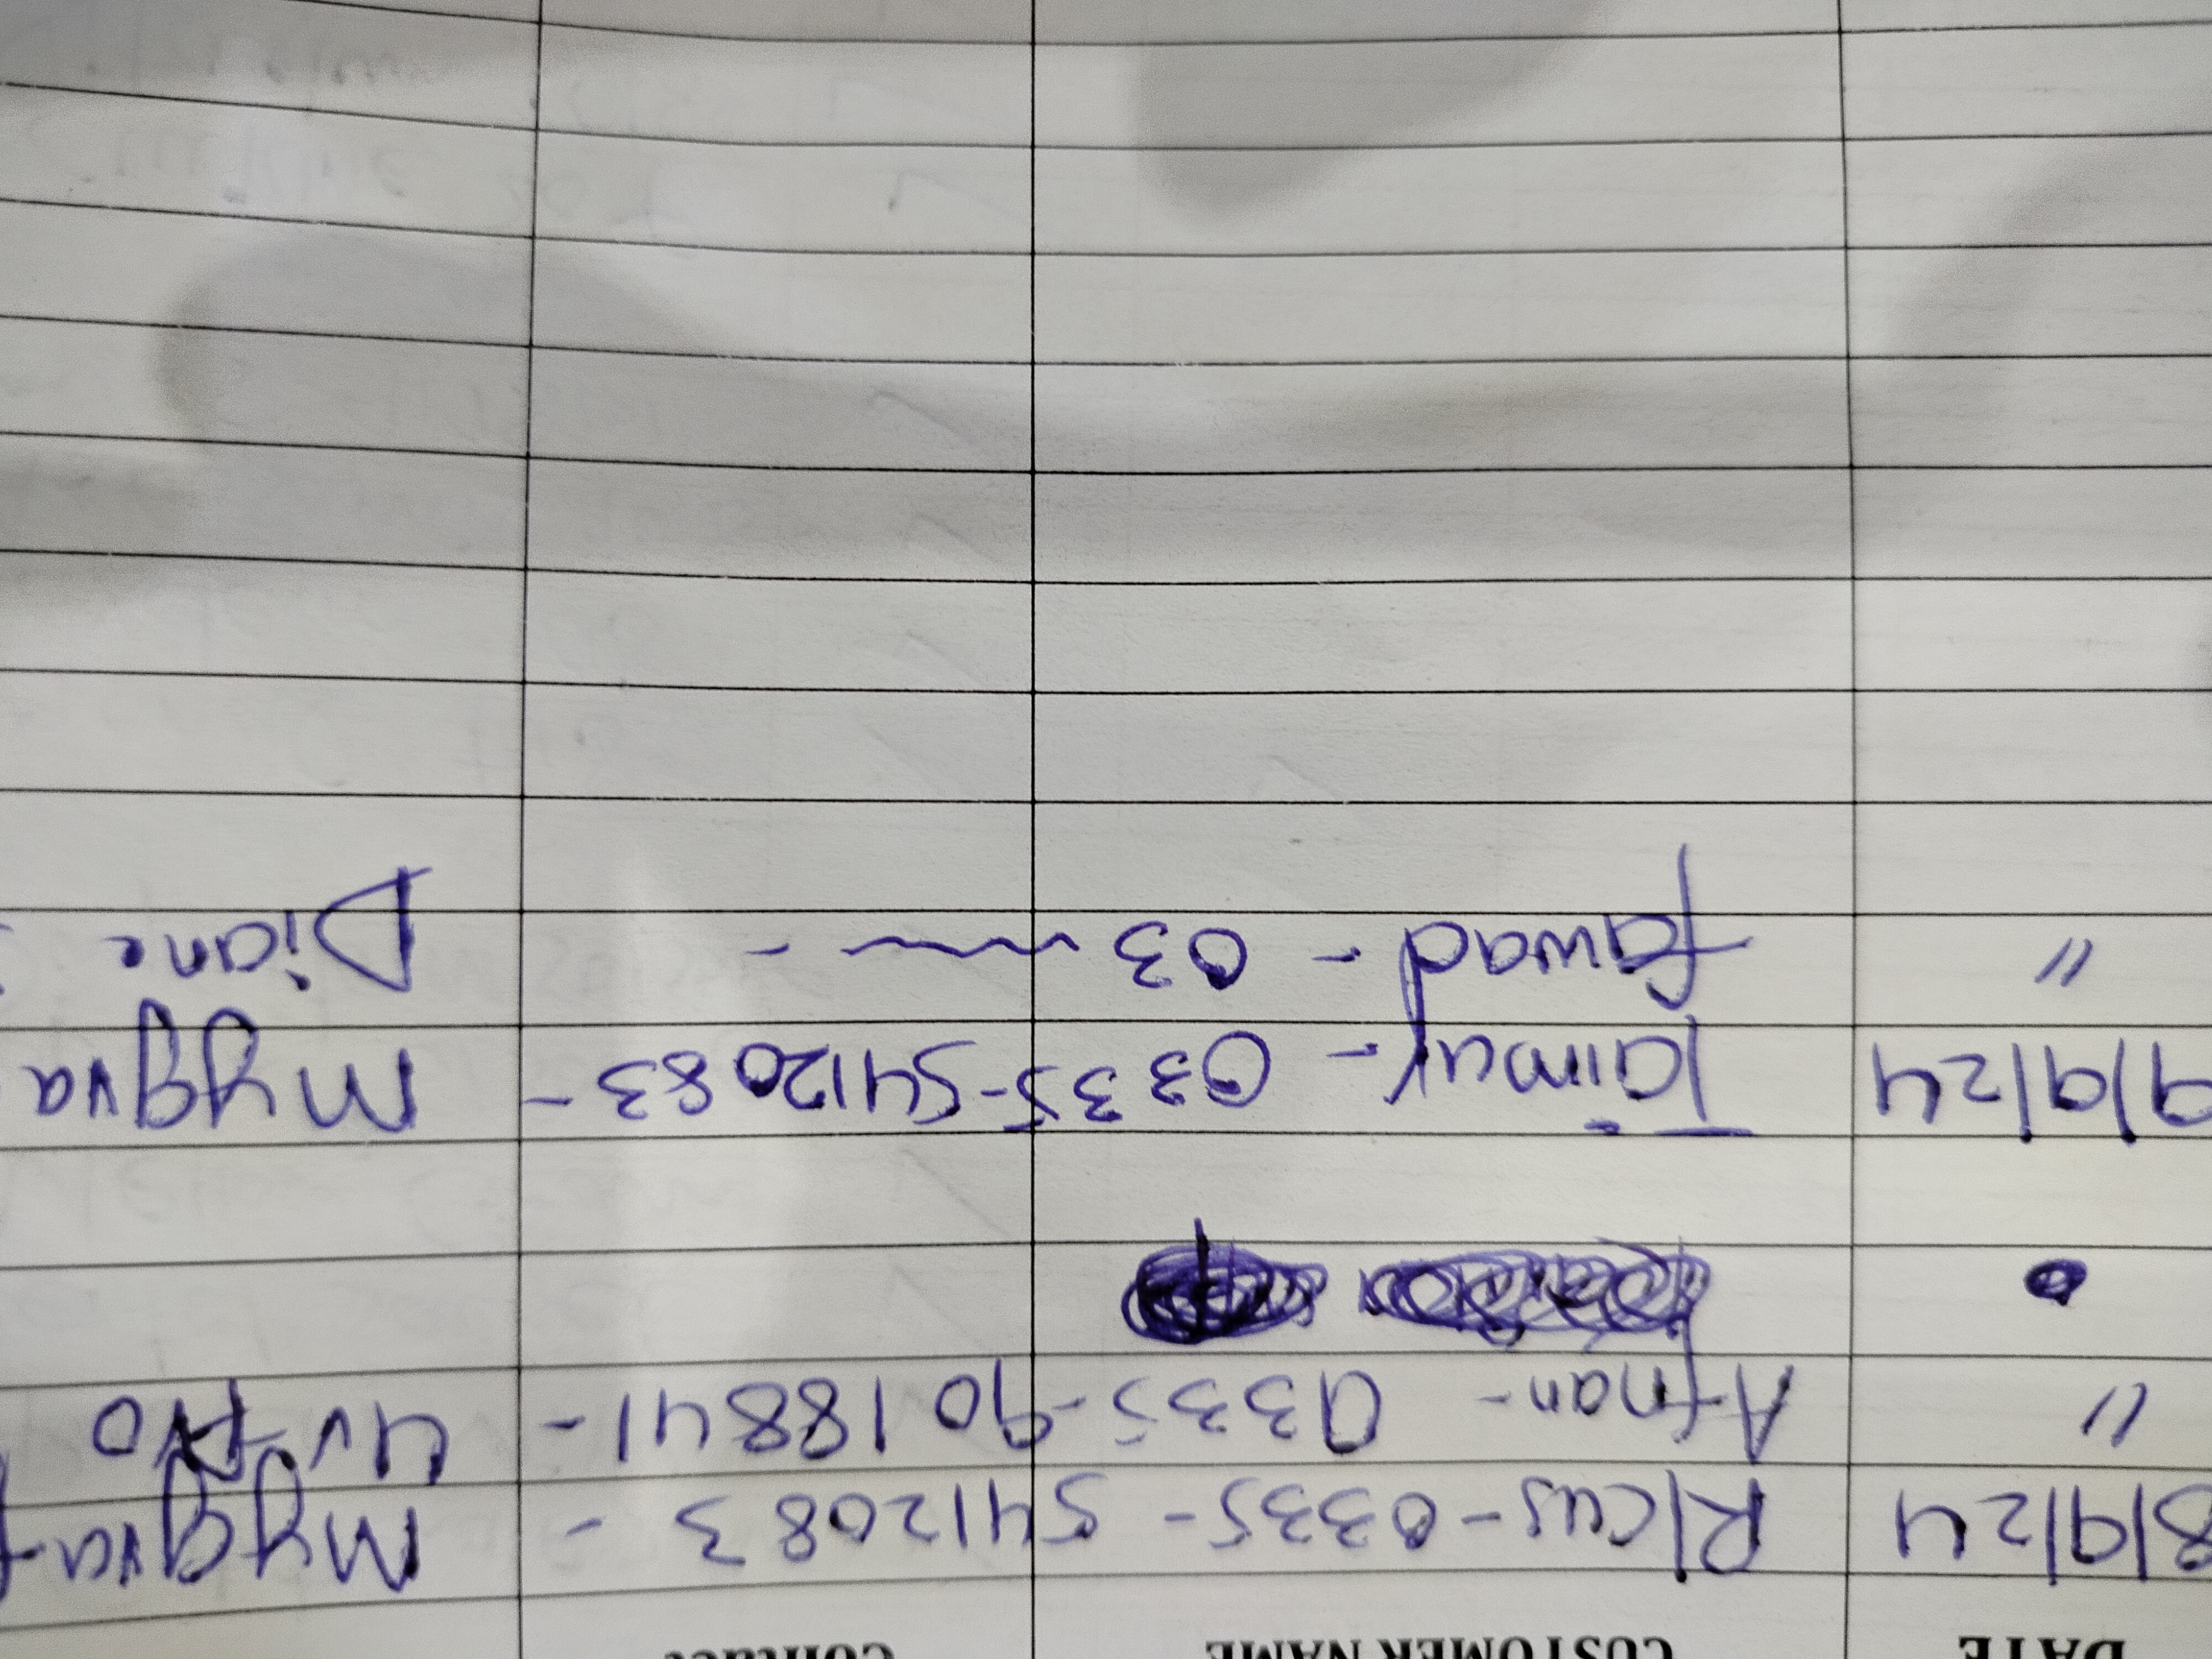 DATE CUSTOMER NAME Contact
8/9/24 R/cus - 0335 - 5412083 - Myqva
" Afnan - 0335 - 9018841 - 4v pro
9/9/24 Taimur - 0335-5412083 - Myqva
" fawad - 03 - Diane